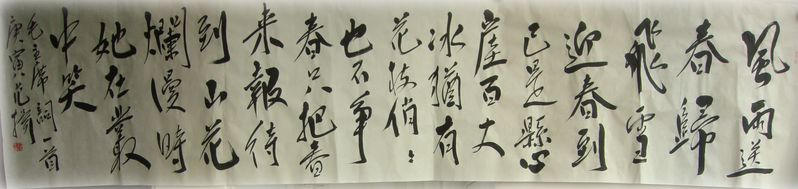 風雨送
春歸
飛雪
迎春到
已是懸
崖百丈
冰猶有
花枝俏〻
也不争
春只把春
来報待
到山花
爛漫時
她在叢
中笑
毛主席詞一首
庚寅